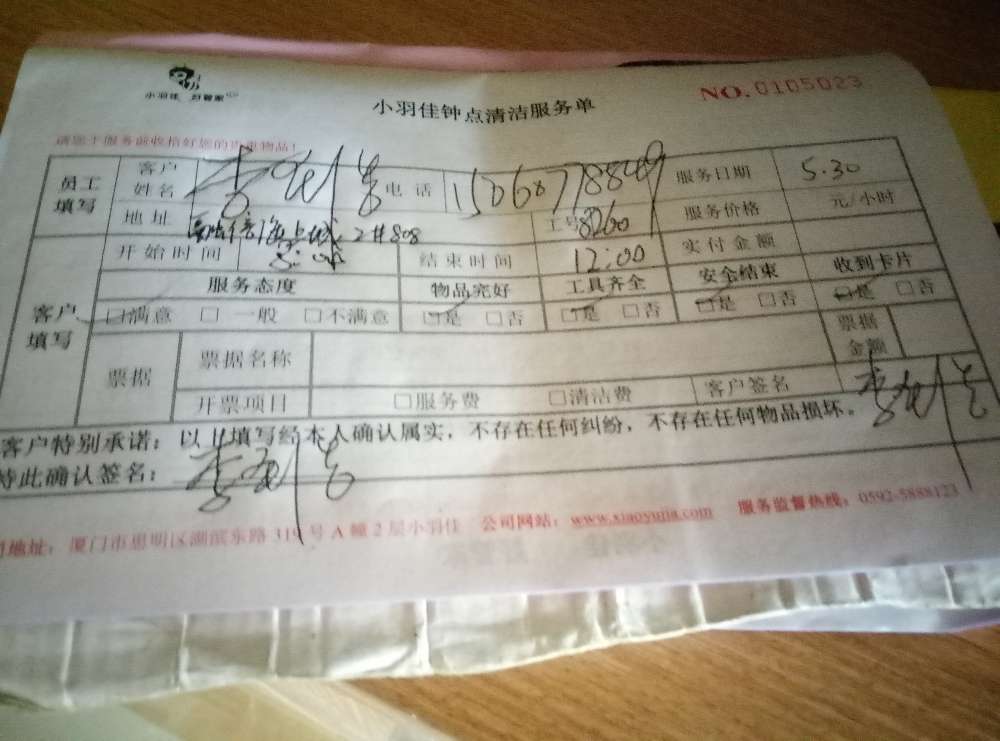 小羽佳 好管家
小羽佳钟点清洁服务单
NO.0105023
请您于服务前收拾好您的贵重物品!
员工填写 客户姓名 李 电话 服务日期 5.30
地址 2#808 工号 8260 服务价格 元/小时
开始时间 8:00 结束时间 12:00 实付金额
客户填写 服务态度 物品完好 工具齐全 安全结束 收到卡片
□满意 □一般 □不满意 □是 □否 □是 □否 □是 □否 □是 □否
票据 票据名称 票据金额
开票项目 □服务费 □清洁费 客户签名 李
客户特别承诺:以上填写经本人确认属实,不存在任何纠纷,不存在任何物品损坏。
特此确认签名: 李
地址:厦门市思明区湖滨东路319号A幢2层小羽佳 公司网站:www.xiaoyujia.com 服务监督热线:0592-5888123